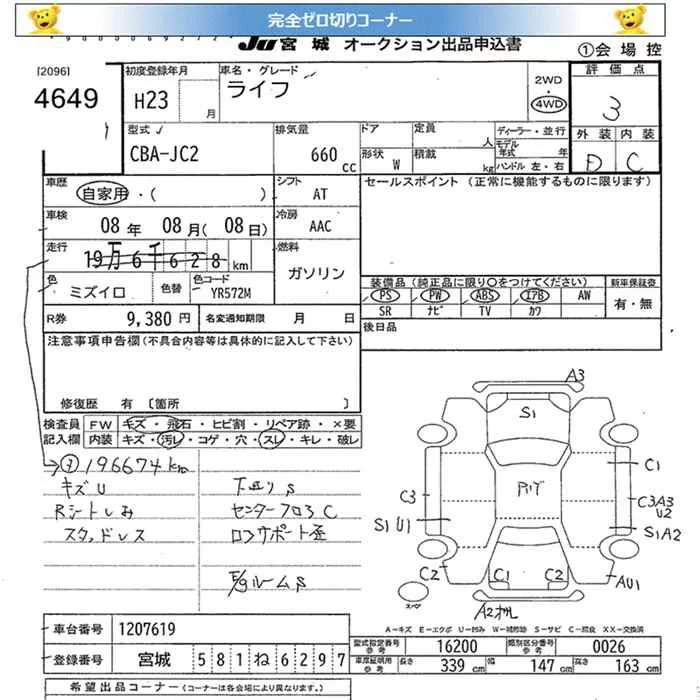 完全ゼロ切りコーナー
JU 宮城 オークション出品申込書
①会場控
[2096]
4649
初度登録年月
H23
月
車名・グレード
ライフ
2WD
・
4WD
評価点
3
型式
CBA-JC2
排気量
660
cc
ドア
定員
人
ディーラー・並行
モデル年式
年
形状
W
積載
kg
ハンドル 左・右
外装
内装
D
C
車歴
自家用・( )
シフト
AT
セールスポイント (正常に機能するものに限ります)
車検
08 年 08 月(08 日)
冷房
AAC
走行
19万6千628 km
燃料
ガソリン
色
ミズイロ
色替
色コード
YR572M
装備品 (純正品に限り○をつけてください)
新車保証書
PS
PW
ABS
エアB
AW
有・無
SR
ナビ
TV
カワ
R券
9,380 円
名変通知期限 月 日
後日品
注意事項申告欄(不具合内容等は具体的に記入して下さい)
修復歴 有 〔箇所
検査員
記入欄
FW
キズ・飛石・ヒビ割・リペア跡・×要
内装
キズ・汚レ・コゲ・穴・スレ・キレ・破レ
196674km
キズU
Rシートしみ
スタッドレス
下回りS
センターフロアC
E/gルームS
A3
S1
C1
C3
C3A3
U2
S1U1
S1A2
C2
C1
C2
AU1
スペア
A2オレ
A−キズ E−エクボ U−凹み W−補修跡 S−サビ C−腐食 XX−交換済
車台番号
1207619
型式指定番号
16200
類別区分番号
0026
登録番号
宮城 581ね6297
車庫証明用参考
長さ
339 cm
幅
147 cm
高さ
163 cm
希望出品コーナー (コーナーは各会場により異なります。)